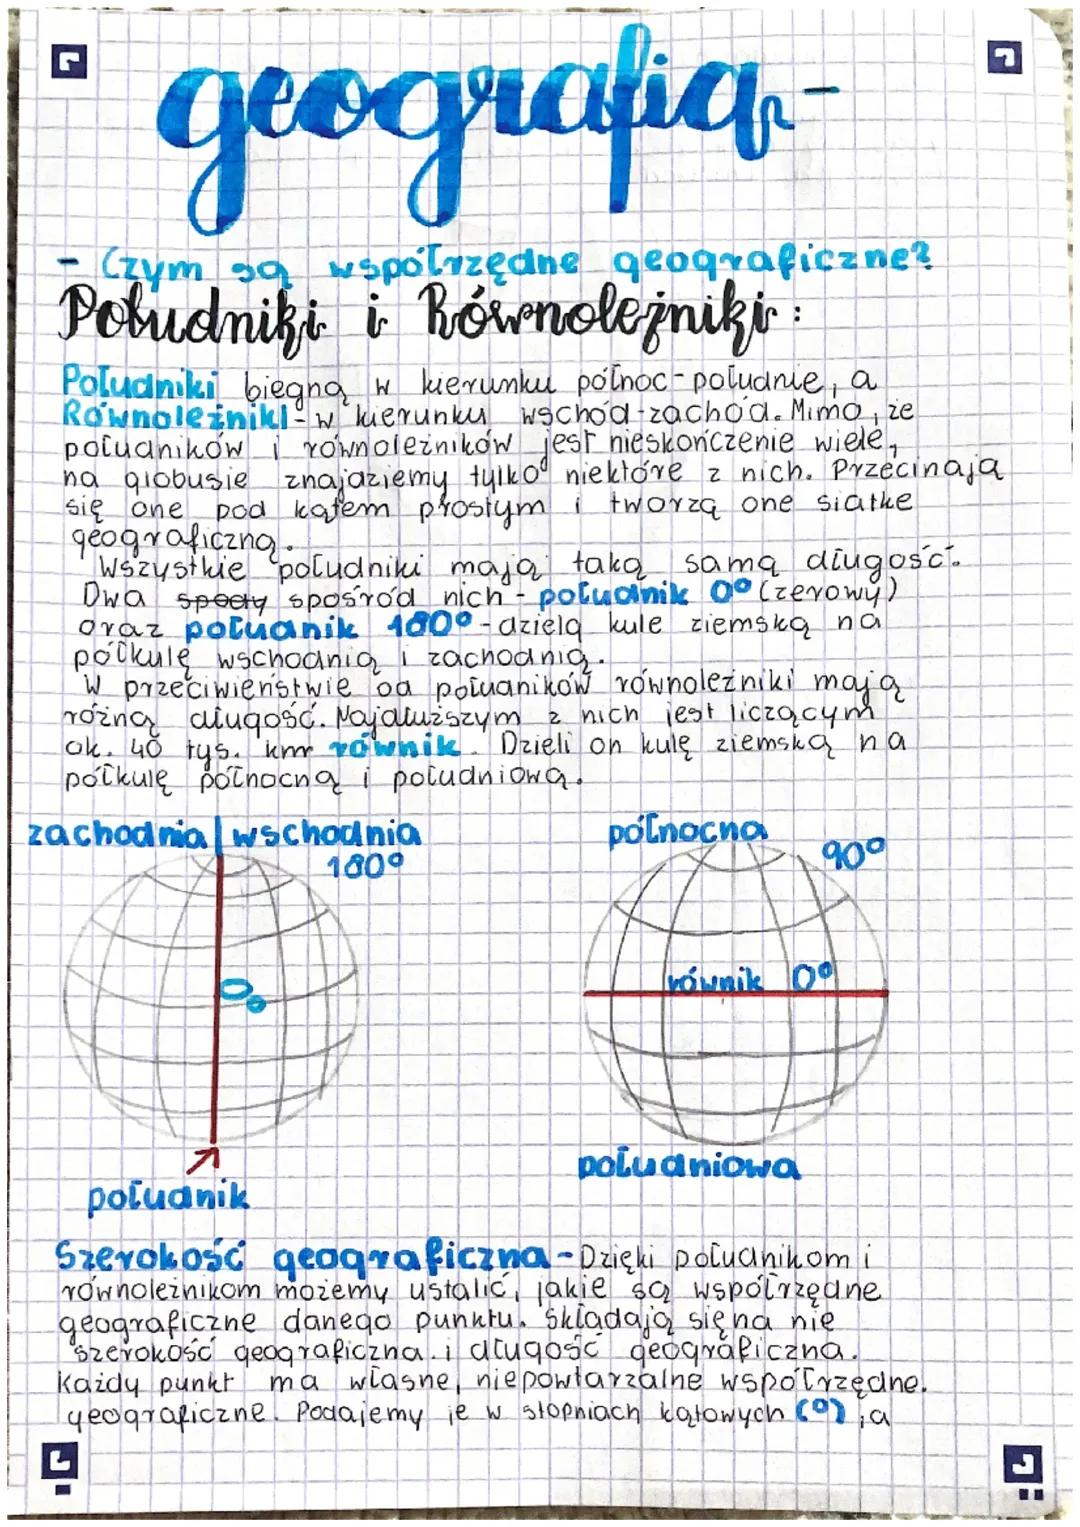 geografia -
- Czym są współrzędne geograficzne?
Południki i Równoleżniki:
Południki biegną w kierunku północ-południe, a
Równoleżniki - w kierunku wschód-zachód. Mimo, że
południków i równoleżników jest nieskończenie wiele,
na globusie znajdziemy tylko niektóre z nich. Przecinają
się one pod kątem prostym i tworzą one siatkę
geograficzną.
Wszystkie południki mają taką samą długość.
Dwa spody spośród nich - południk 0° (zerowy)
oraz południk 180° - dzielą kule ziemską na
półkulę wschodnią i zachodnią.
W przeciwieństwie od południków równoleżniki mają
różną długość. Najdłuższym z nich jest liczącym
ok. 40 tys. km równik. Dzieli on kulę ziemską na
półkulę północną i południową.
zachodnia | wschodnia
180°
0°
południk
północna
90°
równik 0°
południowa
Szerokość geograficzna - Dzięki południkom i
równoleżnikom możemy ustalić, jakie są współrzędne
geograficzne danego punktu. Składają się na nie
szerokość geograficzna i długość geograficzna.
Każdy punkt ma własne, niepowtarzalne współrzędne.
geograficzne. Podajemy je w stopniach kątowych (°), a